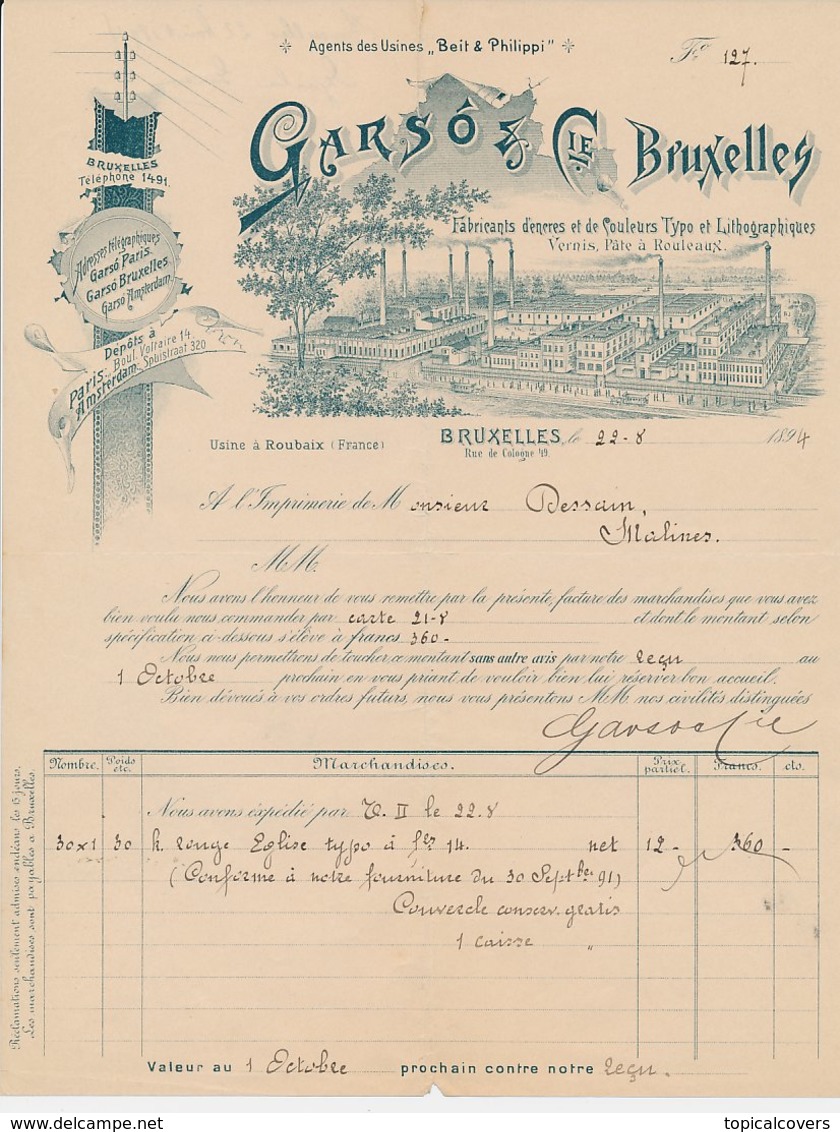 Agents des Usines „Beit & Philippi"
Fo 127.
GARSÓ & CIE Bruxelles
Fabricants d'encres et de Couleurs Typo et Lithographiques
Vernis, Pâte à Rouleaux.
BRUXELLES
Téléphone 1491.
Adresses télégraphiques
Garsó Paris.
Garsó Bruxelles
Garsó Amsterdam.
Dépôts à
Paris: Boul. Voltaire 14
Amsterdam: Spuistraat 320
Usine à Roubaix (France)
BRUXELLES, le 22-8 1894
Rue de Cologne 49.
A l'Imprimerie de Monsieur Dessain,
Malines.
MM.
Nous avons l'honneur de vous remettre par la présente, facture des marchandises que vous avez
bien voulu nous commander par carte 21-8 et dont le montant selon
spécification ci-dessous s'élève à francs 360-
Nous nous permettrons de toucher ce montant sans autre avis par notre reçu au
1 Octobre prochain en vous priant de vouloir bien lui réserver bon accueil.
Bien dévoués à vos ordres futurs, nous vous présentons MM. nos civilités distinguées
Garso & Cie
Nombre. Poids etc. Marchandises. Prix partiel. Francs. cts.
Nous avons expédié par T. II le 22.8
30x1 30 k. rouge Eglise typo à frs 14. net 12- 360 -
(Conforme à notre fourniture du 30 Septbre 91)
Couvercle conserv. gratis
1 caisse "
Réclamations seulement admises endéans les 6 jours.
Les marchandises sont payables à Bruxelles.
Valeur au 1 Octobre prochain contre notre reçu.
delcampe.net
topicalcovers